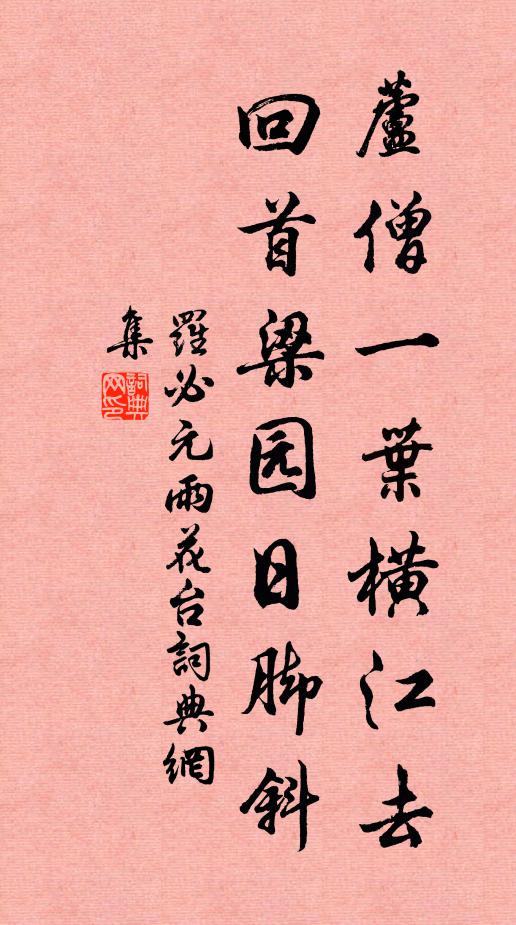 蘆僧一葉橫江去
回首梁园日脚斜
羅必元雨花台詞典網
集
詞典网印